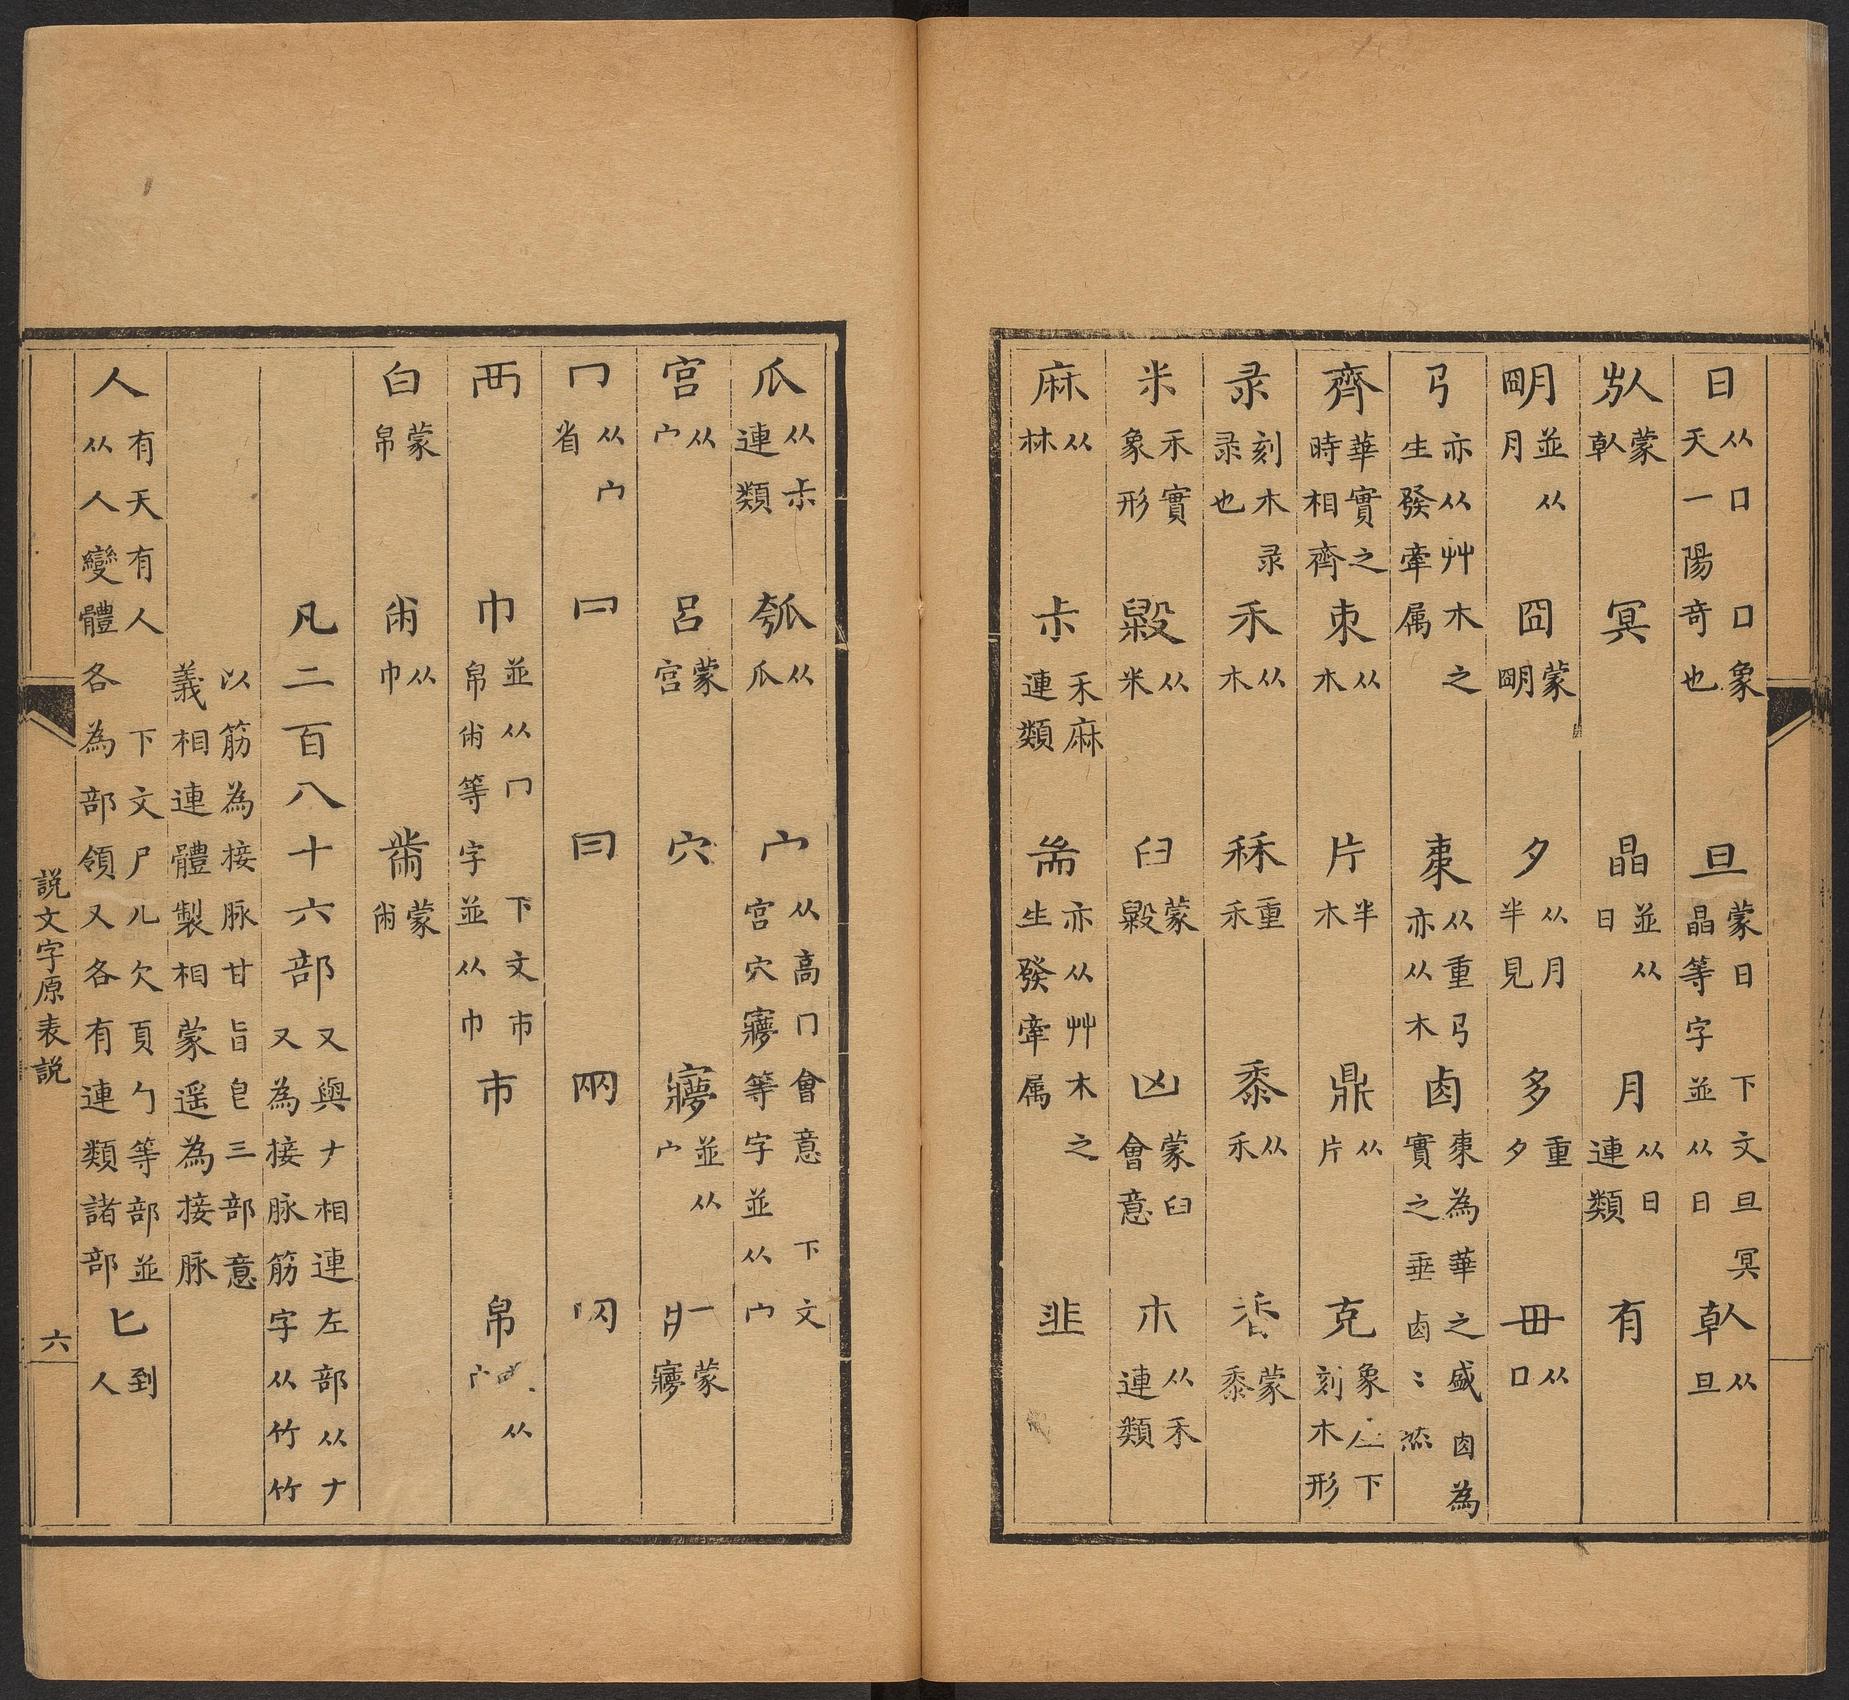 日从口口象天一陽奇也 旦蒙日下文旦冥晶等字並从日 倝从旦
㫃蒙倝 冥 晶並从日 月从日連類 有
朙並从月 囧蒙朙 夕从月半見 多重夕 毌从口
𢎘亦从艸木之生發牽属 𣐺从重𢎘亦从木 𠧪𣐺為華之盛𠧪為實之垂𠧪〻然
齊華實之時相齊 朿从木 片半木 鼎从片 克象下刻木形
录刻木录录也 禾从木 秝重禾 黍从禾 香蒙黍
米禾實象形 毇从米 臼蒙毇 凶蒙臼會意 朩从禾連類
麻从𣏟 尗禾麻連類 耑亦从艸木之生發牽属 韭
瓜从尗連類 瓠从瓜 宀从高冂會意下文宮穴㝱等字並从宀
宮从宀 呂蒙宮 穴 㝱並从宀 疒蒙㝱
冖从宀省 𠔼 冃 㒳 网
襾 巾並从冂下文巿帛㡀等字並从巾 巿 帛从
白蒙帛 㡀从巾 黹蒙㡀
凡二百八十六部又與𠂇相連左部从𠂇又為接脉筋字从竹竹
以筋為接脉甘旨皀三部意義相連體製相蒙遥為接脉
人有天有人下文尸儿欠頁勹等部並从人變體各為部領又各有連類諸部 匕到人
説文字原表説
六